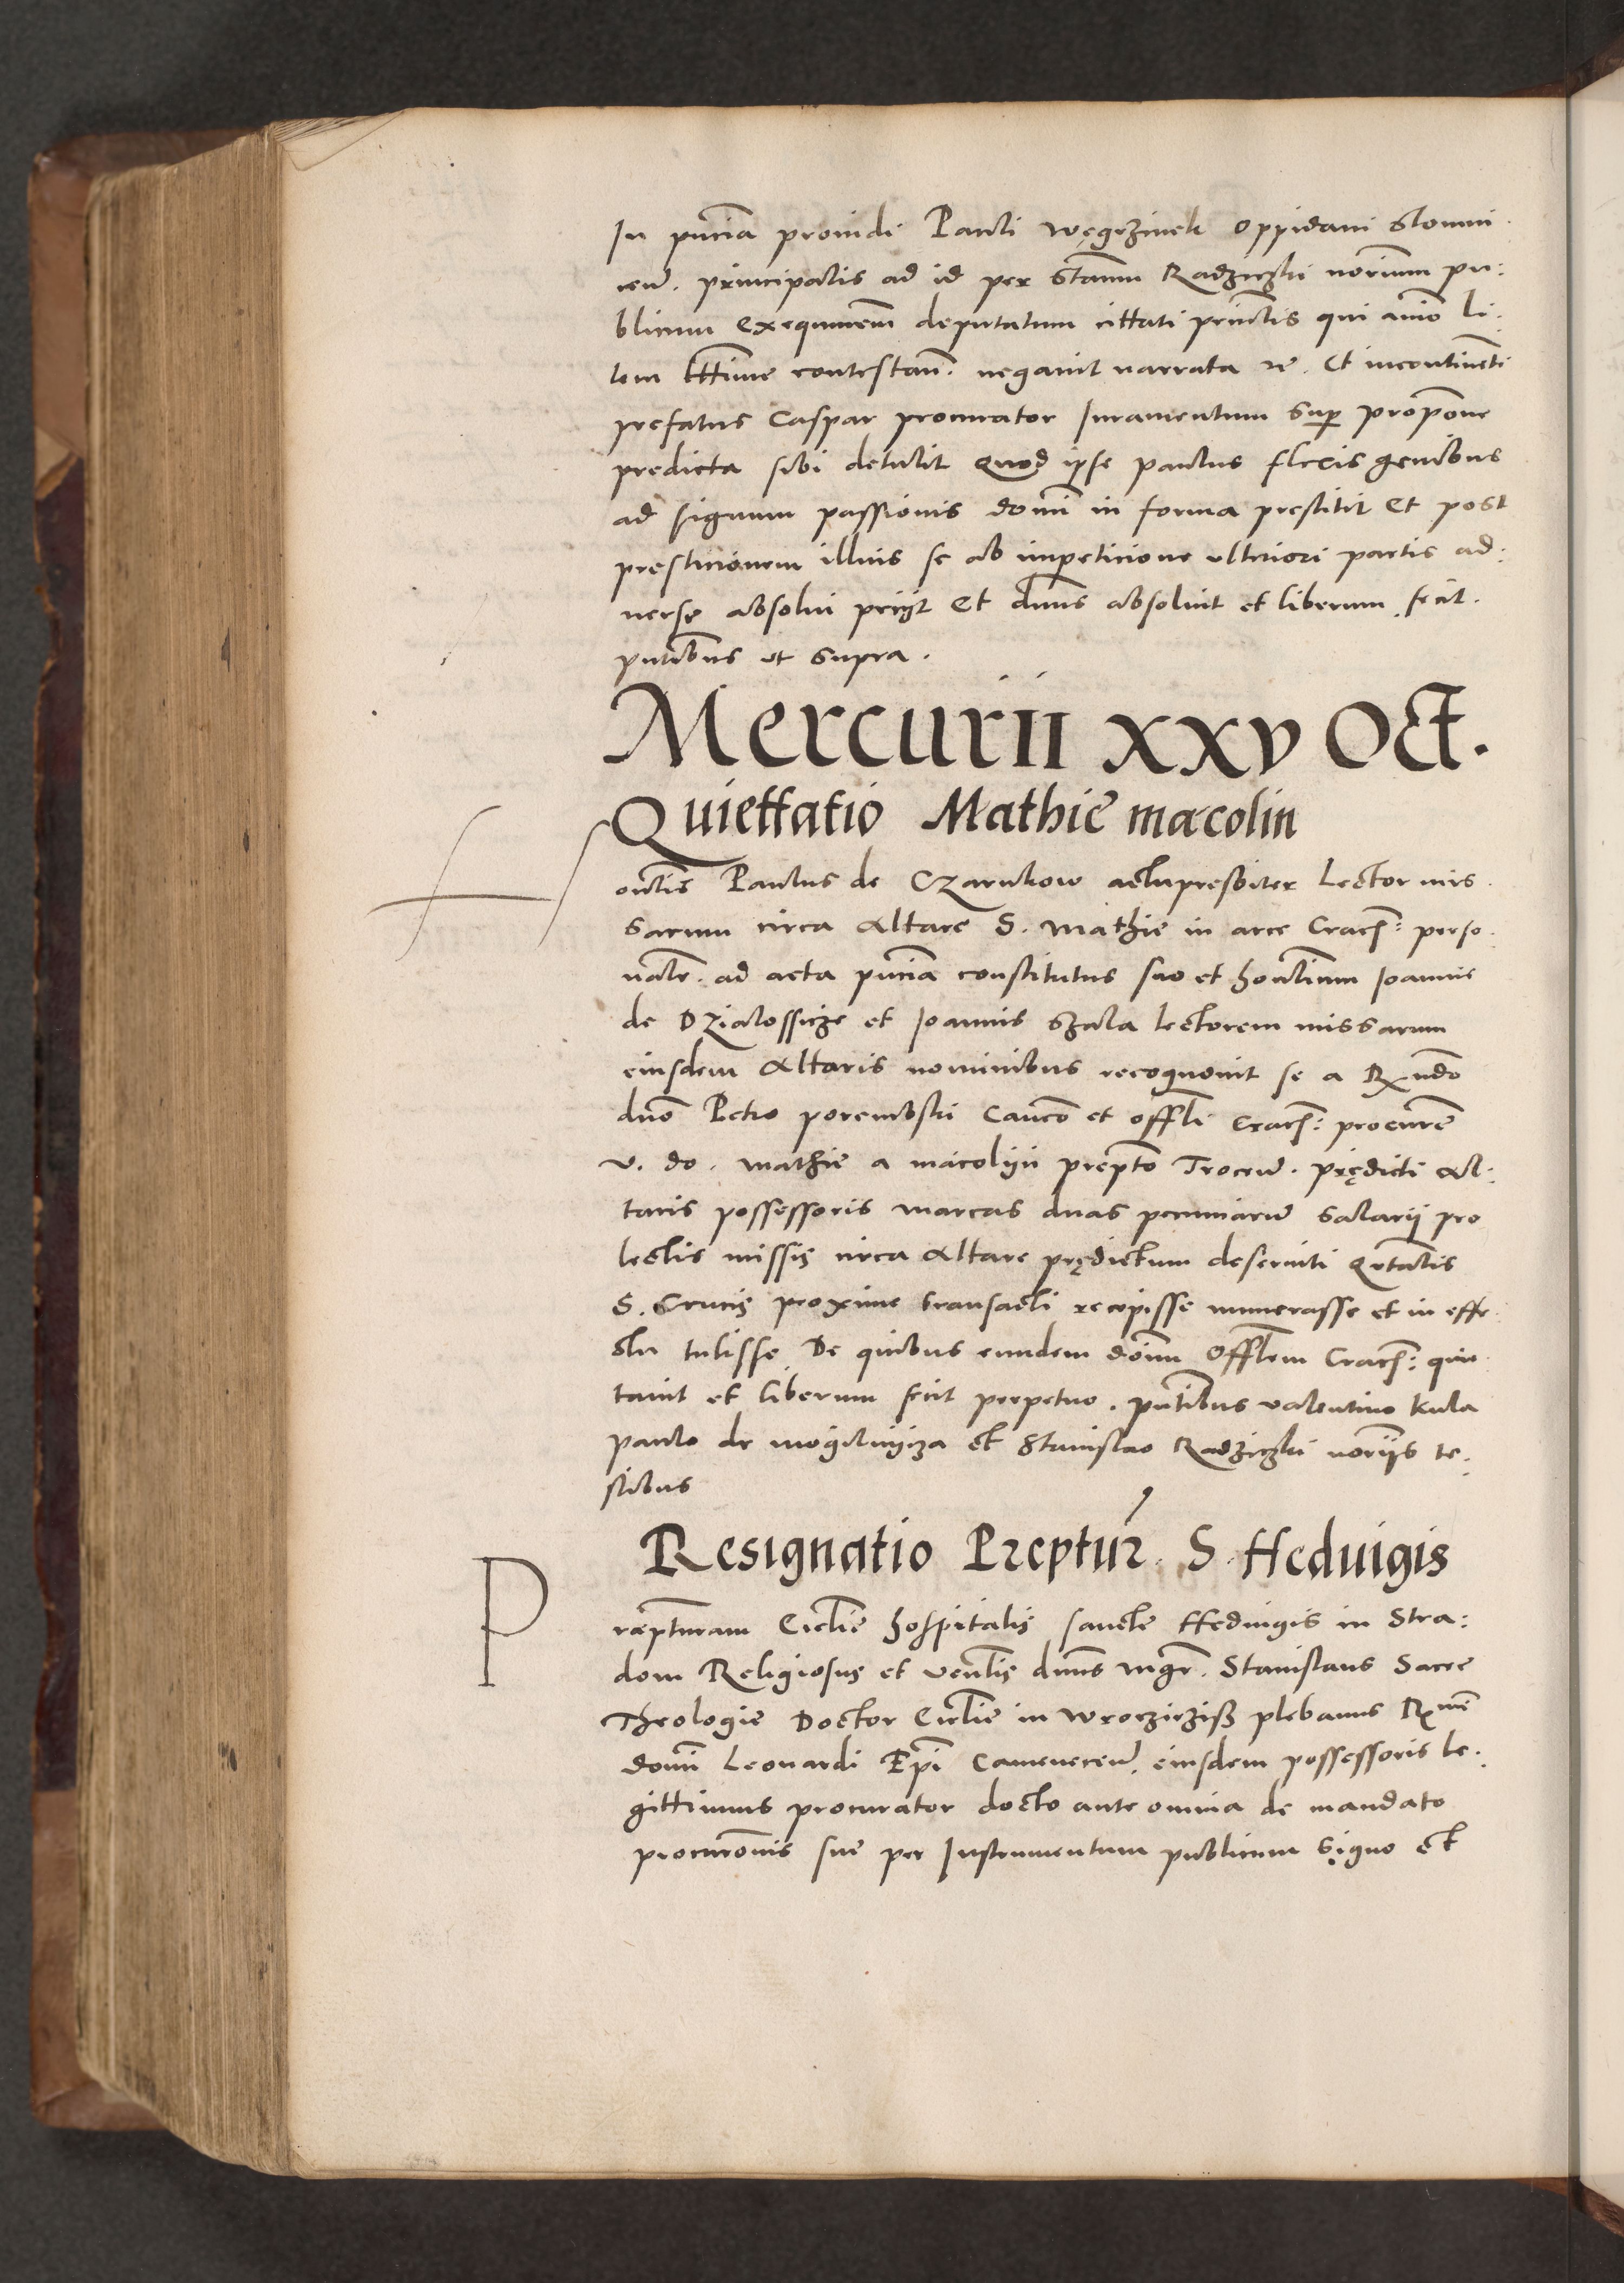 In pnciã prouidi Pauli Węgrzinek Oppidani Slomni
ceń. principalis ad id per Stanm Radziczki norium pu:
blicum exequutem̃ deputatum cittati princlis qui animo li:
tem lttime contestań. negauit narrata rē. Et incontineti
prefatus Caspar procurator Iuramentum sup propone
predicta sibi detulit Quod ipse paulus flexis genibus
ad signum passionis domi in forma prestitit Et post
presticionem illius se ab impeticione ulteriori partis ad:
uerse absolui peijt Et dnus absoluit et liberum fecit.
pntibus ut supra.
Mercurii xxv Oct.
Quiettatio Mathie macolin
H
onlis Paulus de Czarnkow actu presbiter Lector mis
sarum circa Altare S. Mathie in arce Crach: perso
nalr. ad acta pnciã constitutus suo et honlium Ioannis
de Dzialossicze et Ioannis Szala lectorem missarum
eiusdem Altaris nominibus recognouit se a Rndo
dno Petro porembski Canco et offli Crach: procure
v. do. Mathie a macolijn prepto Troceń. prędicti Al:
taris possessoris marcas duas pecuniarũ salarij pro
lectis missis circa Altare prędictum deseruiti Qrtalis
S. Crucis proxime transacti recepisse numerasse et in effe
ctu tulisse De quibus eundem domi Offlem Crach: quie
tauit et liberum fecit perpetuo. pntibus valentino Kula
paulo de mogilnijcza et Stanislao Radziczki norijs te:
stibus
Resignatio Preptur. S. Heduigis
P
raepturam Ecclie hospitalis sancte Heduigis in Stra:
dom Religiosus et venlis dnus mgr. Stanislaus Sacre
Theologie Doctor Ecclie in Wroczicziss plebanus Rmi
domi Leonardi Epi Cameneceń. eiusdem possessoris le.
gittimus procurator docto ante omnia de mandato
procuronis sue per Instrumentum publicum signo et